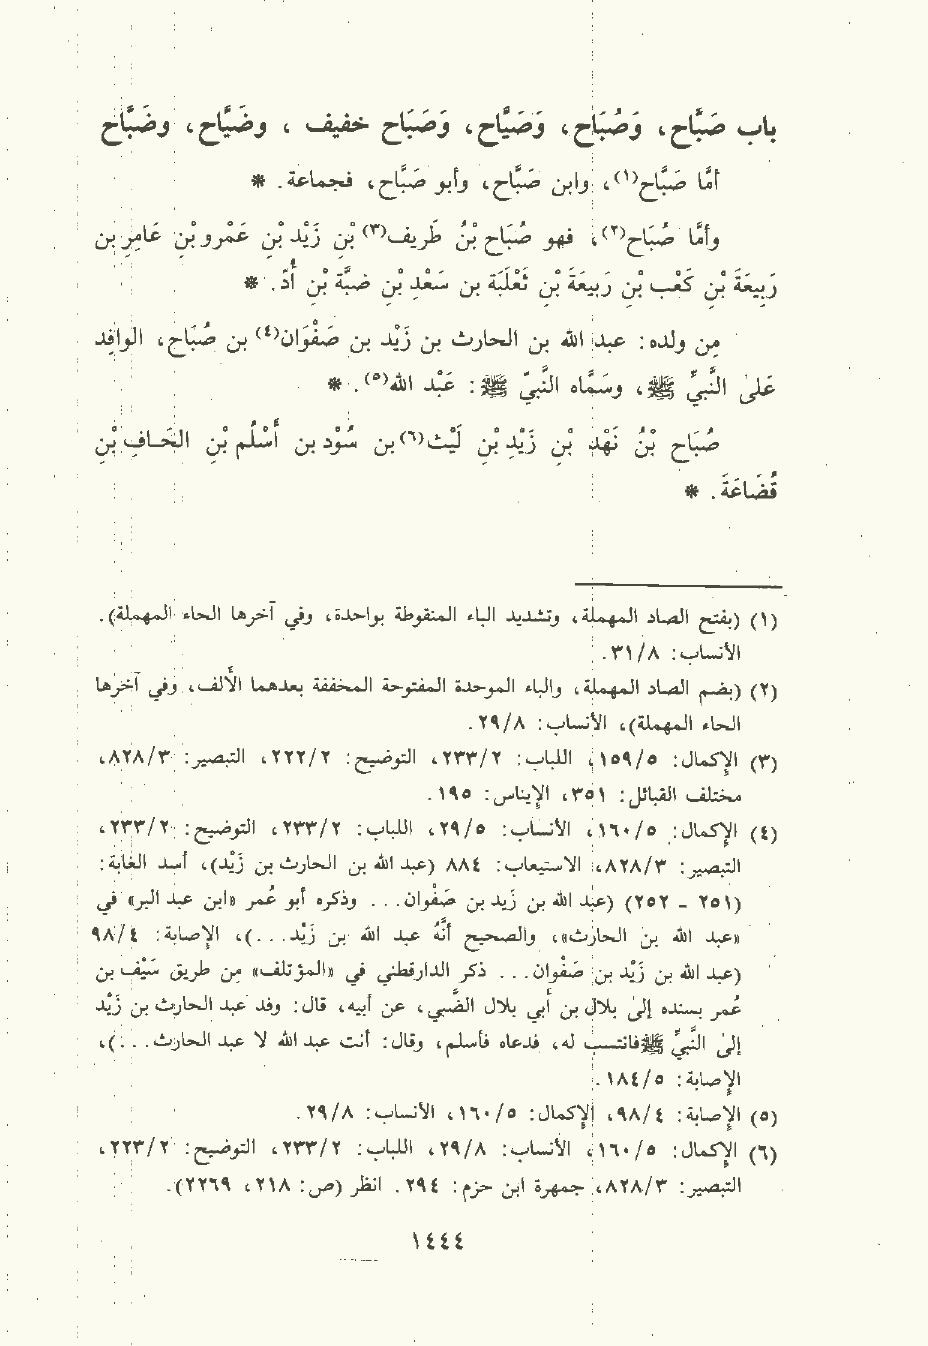 باب صَبَّاح، وَصُبَاح، وَصَيَّاح، وَصَبَاح خفيف ، وضَيَّاح، وضَبَّاح
أمَّا صَبَّاح(١)، وابن صَبَّاح، وأبو صَبَّاح، فجماعة. *
وأمَّا صُبَاح(٢)، فهو صُبَاح بْنُ طَريف(٣) بْنِ زَيْد بْنِ عَمْرو بْنِ عَامِر بن
رَبِيعَةَ بْنِ كَعْب بْنِ رَبيعَةَ بْنِ ثَعْلَبَة بن سَعْدِ بْنِ ضبَّة بْنِ أُدّ. *
مِن ولده: عبد الله بن الحارث بن زَيْد بن صَفْوَان(٤) بن صُبَاح، الوافِد
عَلىٰ النَّبيِّ ﷺ، وسَمَّاه النَّبيّ ﷺ: عَبْد الله(٥). *
صُبَاح بْنُ نَهْد بْنِ زَيْدِ بْنِ لَيْث(٦) بن سُوْد بن أَسْلُم بْنِ الحَـافِ بْنِ
قُضَاعَةَ. *
(١) (بفتح الصاد المهملة، وتشديد الباء المنقوطة بواحدة، وفي آخرها الحاء المهملة).
الأنساب: ٣١/٨.
(٢) (بضم الصاد المهملة، والباء الموحدة المفتوحة المخففة بعدهما الألف، وفي آخرها
الحاء المهملة)، الأنساب: ٢٩/٨.
(٣) الإكمال: ١٥٩/٥، اللباب: ٢٣٣/٢، التوضيح: ٢٢٢/٢، التبصير: ٨٢٨/٣،
مختلف القبائل: ٣٥١، الإيناس: ١٩٥.
(٤) الإكمال: ١٦٠/٥، الأنساب: ٢٩/٥، اللباب: ٢٣٣/٢، التوضيح: ٢٣٣/٢،
التبصير: ٨٢٨/٣، الاستيعاب: ٨٨٤ (عبد الله بن الحارث بن زَيْد)، أسد الغابة:
(٢٥١ - ٢٥٢) (عبد الله بن زيد بن صَفْوان. . . وذكره أبو عُمر «ابن عبد البر» في
«عبد الله بن الحارث»، والصحيح أنَّهُ عبد الله بن زَيْد. . .)، الإصابة: ٩٨/٤
(عبد الله بن زَيْد بن صَفْوان. . . ذكر الدارقطني في «المؤتلف» مِن طريق سَيْف بن
عُمر بسنده إلىٰ بلال بن أبي بلال الضَّبي، عن أبيه، قال: وفد عبد الحارث بن زَيْد
إلىٰ النَّبيِّ ﷺ فانتسب له، فدعاه فأسلم، وقال: أنت عبد الله لا عبد الحارث. . .)،
الإصابة: ١٨٤/٥.
(٥) الإصابة: ٩٨/٤، الإكمال: ١٦٠/٥، الأنساب: ٢٩/٨.
(٦) الإكمال: ١٦٠/٥، الأنساب: ٢٩/٨، اللباب: ٢٣٣/٢، التوضيح: ٢٢٣/٢،
التبصير: ٨٢٨/٣، جمهرة ابن حزم: ٢٩٤. انظر (ص: ٢١٨، ٢٢٦٩).
١٤٤٤